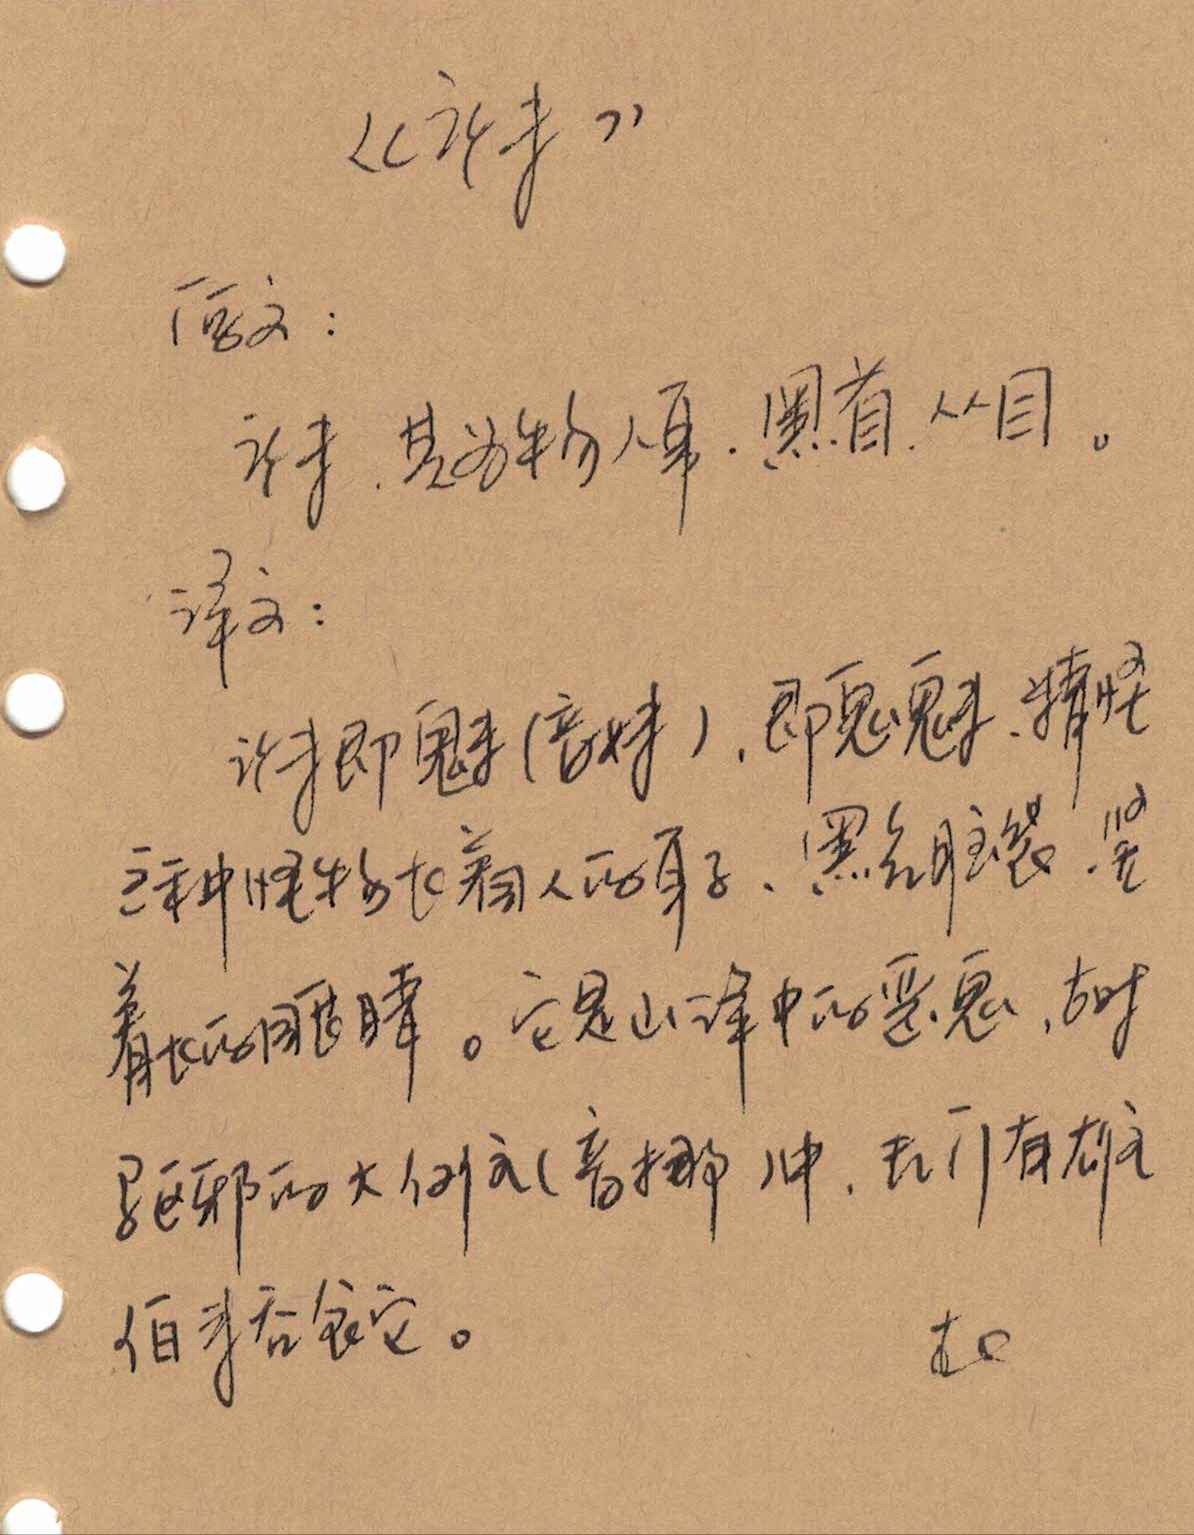 《祙》
原文：
祙、其为物人身、黑首、从目。
译文：
祙即魅（音妹）、即鬼魅、精怪
这种怪物长着人的身子、黑色脑袋、竖
着长的眼睛。它是山泽中的恶鬼、古时
驱邪的大傩（音挪）中、专门有雄
伯来吞食它。